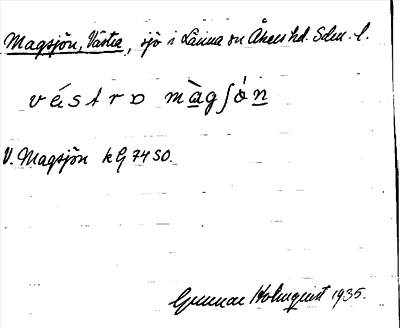 Magsjön, Västra, sjö i Länna sn Åkers hd. Sdm. l.
véstra màgʃón
V. Magsjön kG 74 SO.
Gunnar Holmquist 1935.